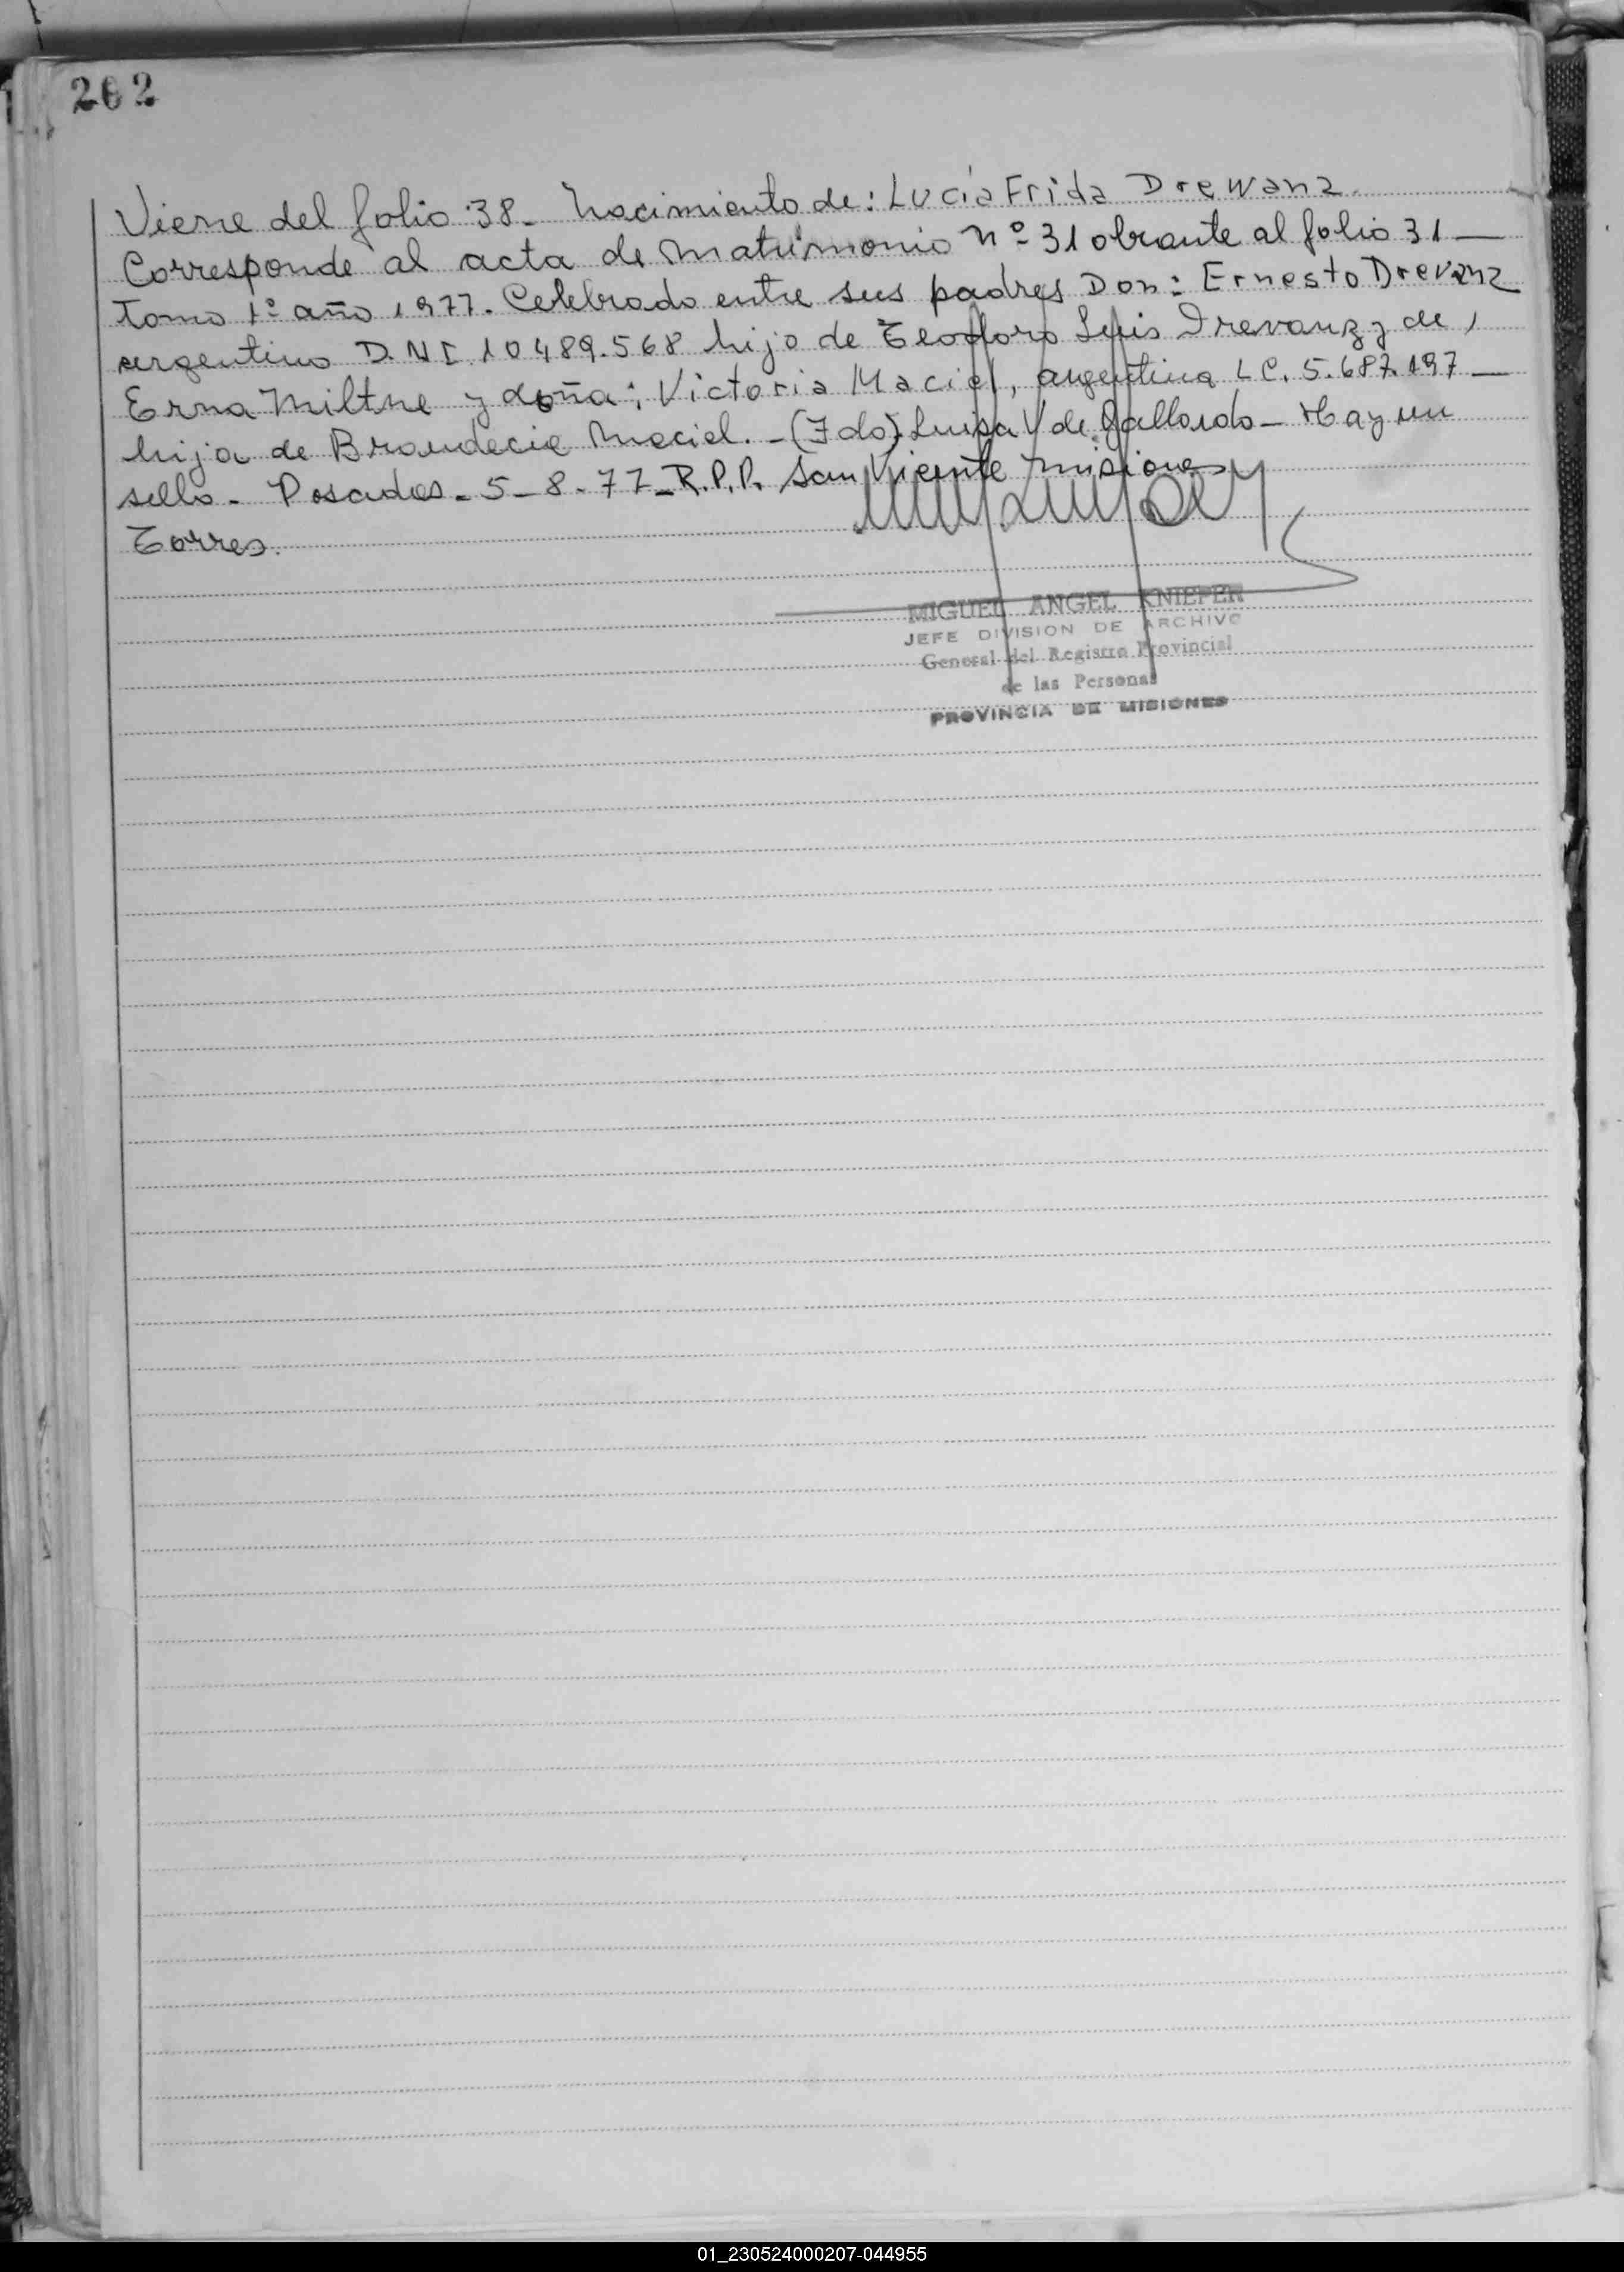 262
Viene del folio 38_ Nacimiento de: Lucía Frida Drewanz
Corresponde al acta de matrimonio nº 31 obrante al folio 31 —
tomo 1º año 1977. Celebrado entre sus padres Don: Ernesto Drevanz
argentino D.N.I. 10489.568 hijo de Teodoro Luis Drevanz y de,
Erna Miltne y doña: Victoria Maciel, argentina L C. 5.687.197 —
hija de Maciel. - (Fdo) Luisa V de Gallardo - Hay un
sello - Posadas - 5 - 8 - 77 - R.P.P. San Vicente misiones
Torres.
MIGUEL ANGEL KNIEPER
JEFE DIVISION DE ARCHIVO
General del Registro Provincial
de las Personas
PROVINCIA DE MISIONES
01_230524000207-044955